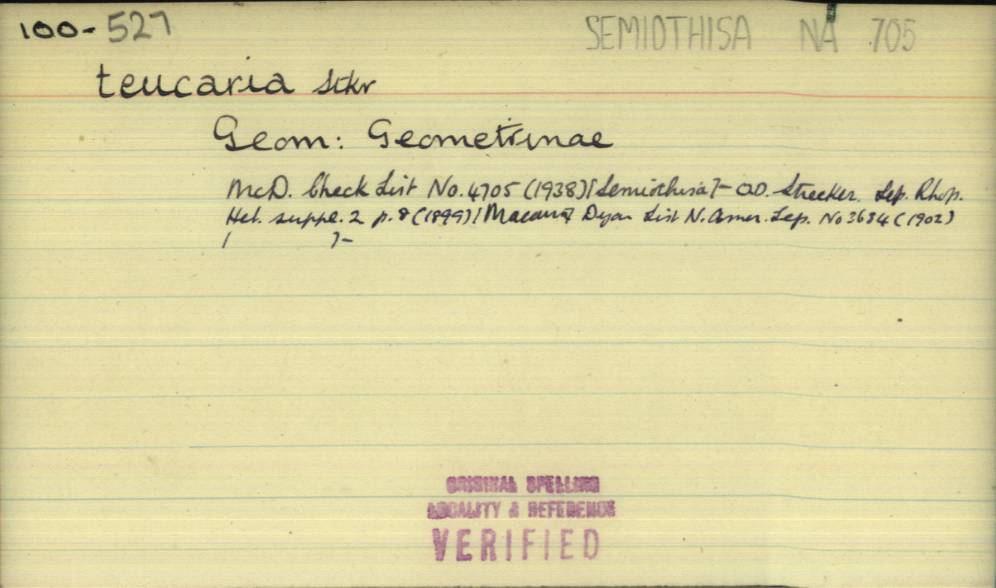 100-527
SEMIOTHISA NA 705
teucaria Stkr
Geom: Geometrinae
McD. Check List No. 4705 (1938) [Semiothisa] - Strecker. Lep. Rhop.
Het. suppl. 2 p. 8 (1899) [Macaria] Dyar List N. Amer. Lep. No 3684 (1902)
[ ]-
ORIGINAL SPELLING
LOCALITY & REFERENCE
VERIFIED